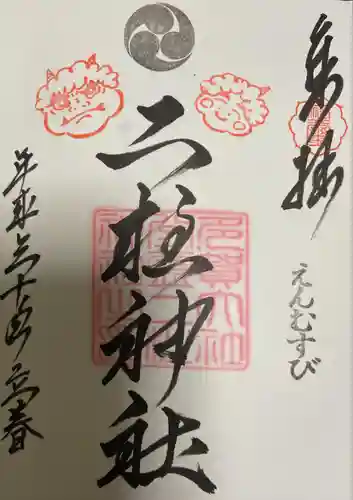 奉拝
えんむすび
二柱神社
平成三十年立春